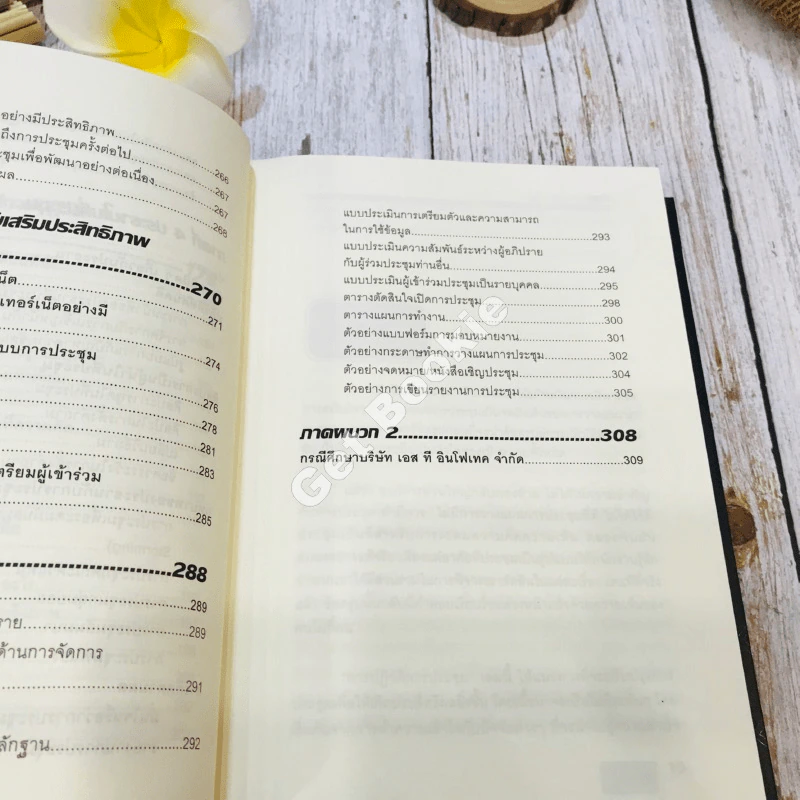 อย่างมีประสิทธิภาพ
ถึงการประชุมครั้งต่อไป....................266
ะชุมเพื่อพัฒนาอย่างต่อเนื่อง..........267
ผล..........267
..........268
เสริมประสิทธิภาพ
..........270
น็ต..........271
เทอร์เน็ตอย่างมี
..........274
บบการประชุม
..........276
..........278
..........281
..........283
ตรียมผู้เข้าร่วม
..........285
..........288
..........289
ราย..........289
ด้านการจัดการ
..........291
ลักฐาน..........292
แบบประเมินการเตรียมตัวและความสามารถ
ในการใช้ข้อมูล..........293
แบบประเมินความสัมพันธ์ระหว่างผู้อภิปราย
กับผู้ร่วมประชุมท่านอื่น..........294
แบบประเมินผู้เข้าร่วมประชุมเป็นรายบุคคล..........295
ตารางตัดสินใจเปิดการประชุม..........298
ตารางแผนการทำงาน..........300
ตัวอย่างแบบฟอร์มการมอบหมายงาน..........301
ตัวอย่างกระดาษทำการวางแผนการประชุม..........302
ตัวอย่างจดหมาย/หนังสือเชิญประชุม..........304
ตัวอย่างการเขียนรายงานการประชุม..........305
ภาคผนวก 2..........308
กรณีศึกษาบริษัท เอส ที อินโฟเทค จำกัด..........309
Get Bookie